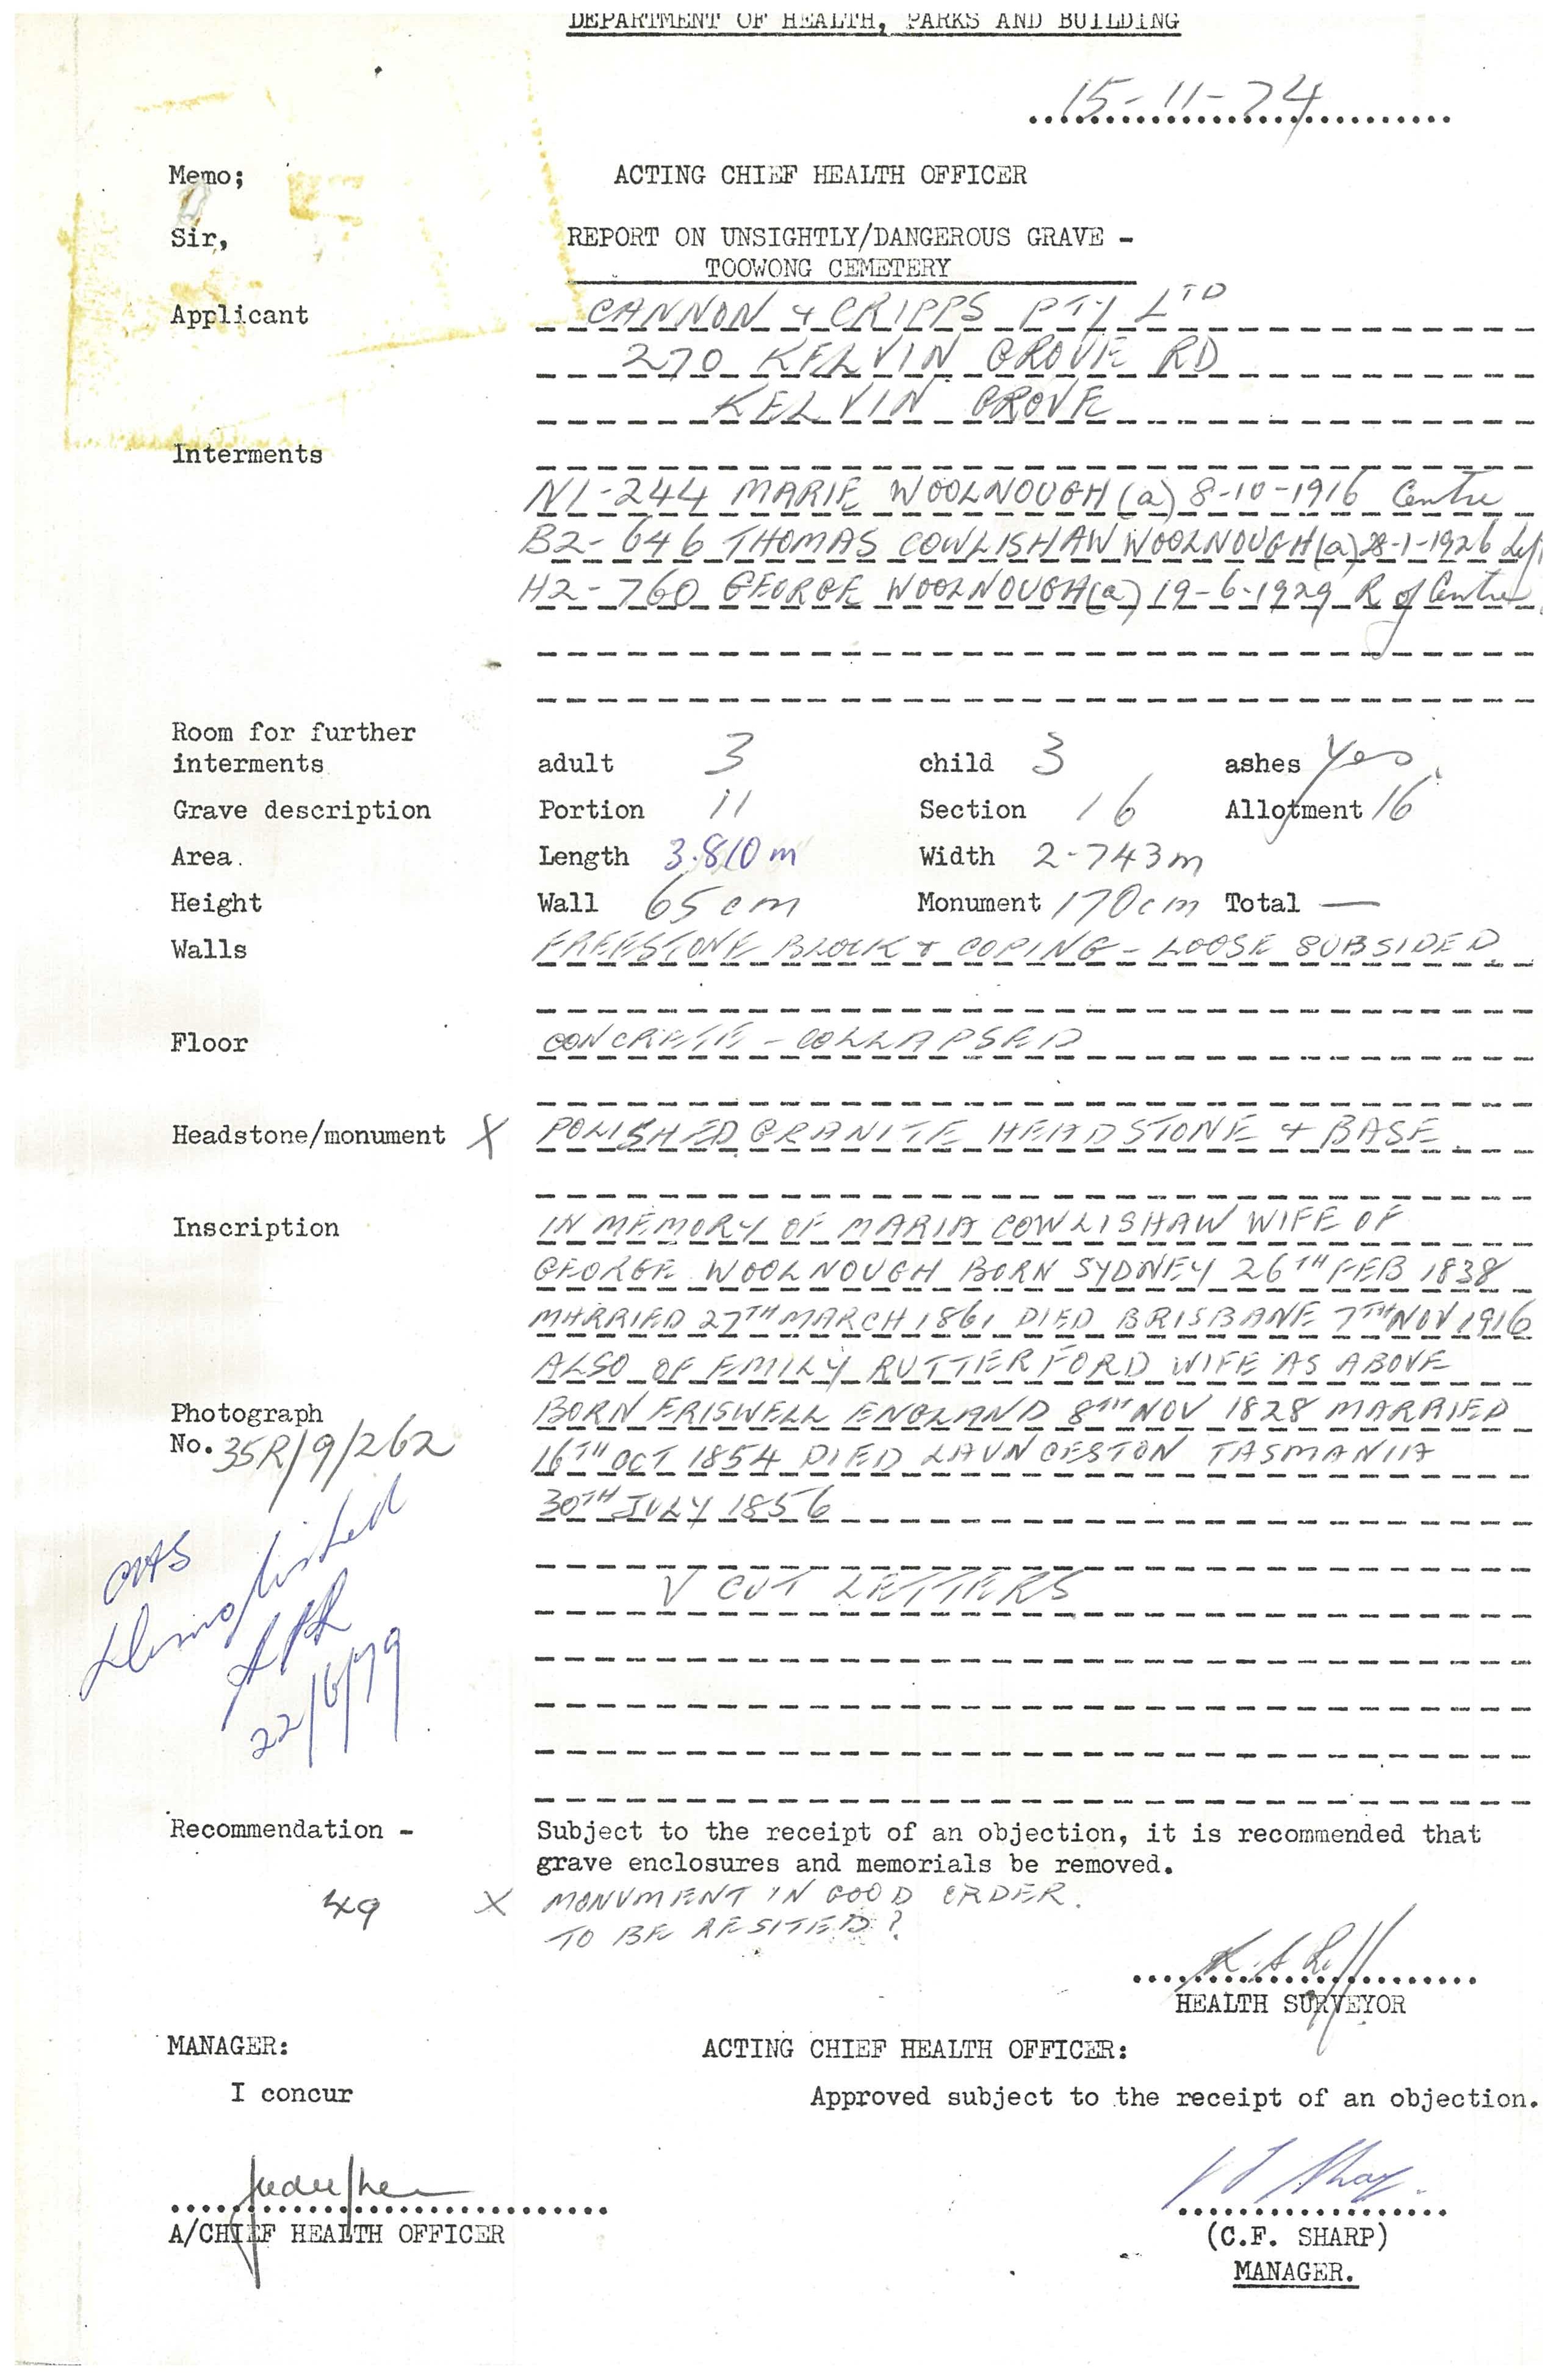 DEPARTMENT OF HEALTH, PARKS AND BUILDING
15-11-74
Memo; ACTING CHIEF HEALTH OFFICER
Sir, REPORT ON UNSIGHTLY/DANGEROUS GRAVE -
TOOWONG CEMETERY
Applicant CANNON & CRIPPS PTY LTD
270 KELVIN GROVE RD
KELVIN GROVE
Interments
N1-244 MARIE WOOLNOUGH (a) 8-10-1916 Centre
B2-646 THOMAS COWLISHAW WOOLNOUGH (a) 28-1-1926 Left
H2-760 GEORGE WOOLNOUGH (a) 19-6-1929 R of Centre
Room for further
interments adult 3 child 3 ashes Yes.
Grave description Portion 11 Section 16 Allotment 16
Area. Length 3.810m Width 2-743m
Height Wall 65cm Monument 170cm Total —
Walls FREESTONE BLOCK & COPING - LOOSE SUBSIDED.
Floor CONCRETE - COLLAPSED
Headstone/monument X POLISHED GRANITE HEADSTONE & BASE.
Inscription IN MEMORY OF MARIA COWLISHAW WIFE OF
GEORGE WOOLNOUGH BORN SYDNEY 26TH FEB 1838
MARRIED 27TH MARCH 1861 DIED BRISBANE 7TH NOV 1916
ALSO OF EMILY RUTTERFORD WIFE AS ABOVE
Photograph BORN FRISWELL ENGLAND 8TH NOV 1828 MARRIED
No. 35R/9/262 16TH OCT 1854 DIED LAUNCESTON TASMANIA
30TH JULY 1856
V CUT LETTERS
22/6/79
Recommendation - Subject to the receipt of an objection, it is recommended that
grave enclosures and memorials be removed.
49 X MONUMENT IN GOOD ORDER.
TO BE RESITED?
HEALTH SURVEYOR
MANAGER: ACTING CHIEF HEALTH OFFICER:
I concur Approved subject to the receipt of an objection.
A/CHIEF HEALTH OFFICER (C.F. SHARP)
MANAGER.